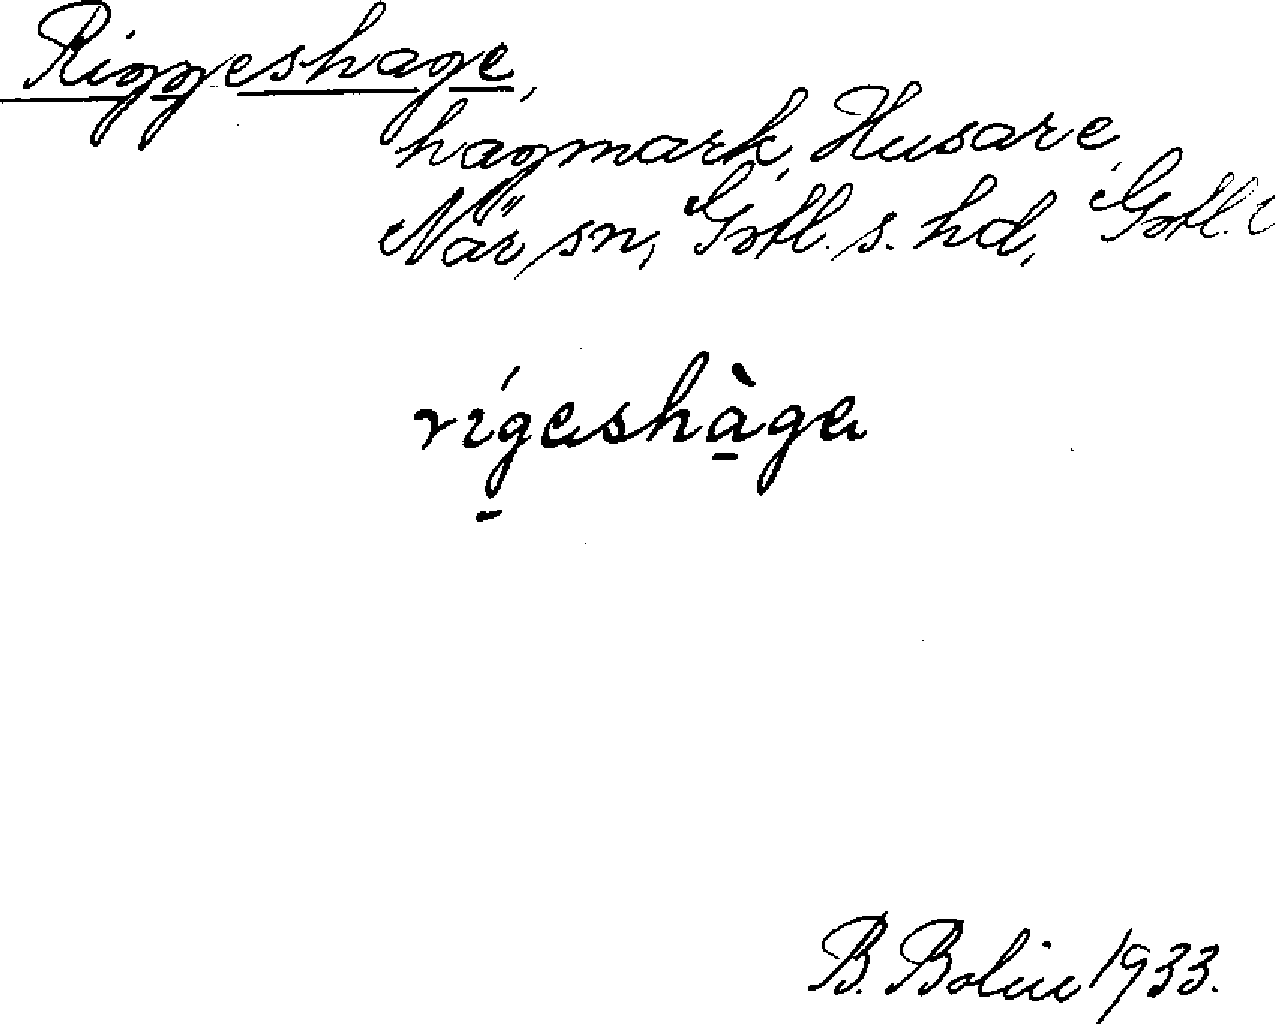 Riggeshage,
hagmark, Husare,
När sn, Gotl. s. hd, Gotl.
rígeshàge
B. Bolin 1933.